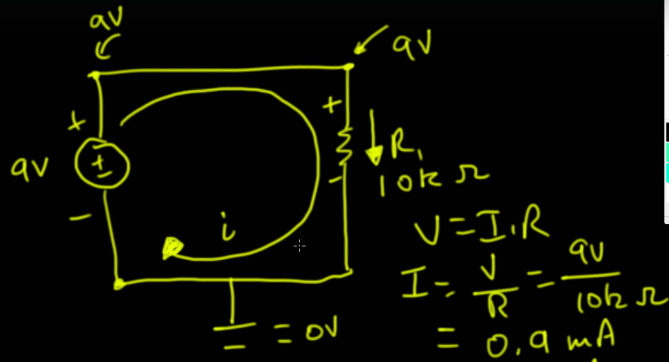 9V
9V
+
+
9V
±
R₁
-
10k Ω
-
i
V = I.R
I = V/R = 9V/10k Ω
= 0V
= 0.9 mA